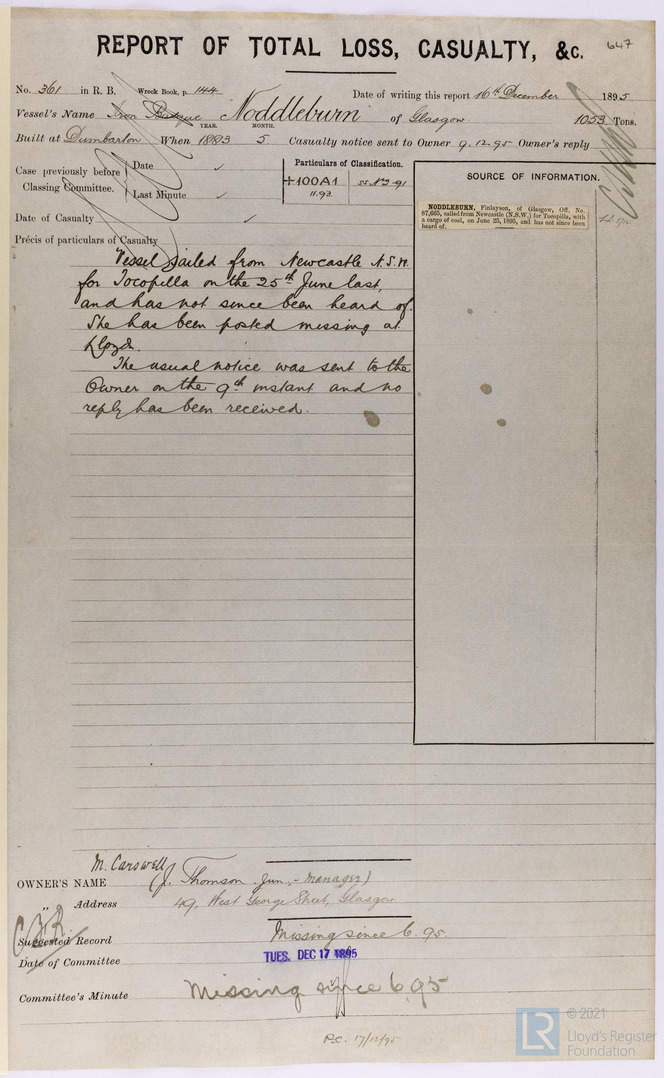 REPORT OF TOTAL LOSS, CASUALTY, &c. 647
No. 361 in R. B. Wreck Book, p. 144 Date of writing this report 16th December 1895
Vessel's Name Iron Barque Noddleburn of Glasgow 1053 Tons.
YEAR. MONTH.
Built at Dumbarton When 1883 5 Casualty notice sent to Owner 9.12.95 Owner's reply
Case previously before Classing Committee. Date ✓
Last Minute ✓
Particulars of Classification.
+100A1 ss No 2-91
11.93.
SOURCE OF INFORMATION.
NODDLEBURN, Finlayson, of Glasgow, Off. No.
87,665, sailed from Newcastle (N.S.W.) for Tocopilla, with
a cargo of coal, on June 25, 1895, and has not since been
heard of.
Date of Casualty ✓
Précis of particulars of Casualty
Vessel sailed from Newcastle N.S.W.
for Tocopilla on the 25th June last,
and has not since been heard of.
She has been posted missing at
Lloyds.
The usual notice was sent to the
Owner on the 9th instant and no
reply has been received.
M. Carswell
OWNER'S NAME (J. Thomson Jun. - Manager)
„ Address 49, West George Street, Glasgow
Suggested Record Missing since 6.95.
Date of Committee TUES. DEC 17 1895
Committee's Minute Missing since 6.95
P.C. 17/12/95
LR © 2021
Lloyd's Register
Foundation